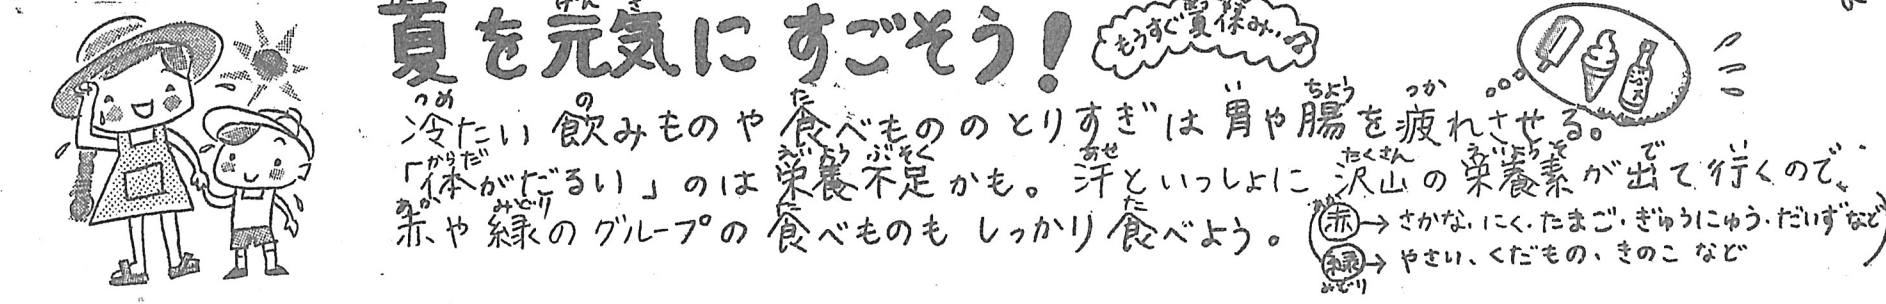 夏を元気にすごそう!
もうすぐ夏休み…♪
冷たい飲みものや食べもののとりすぎは胃や腸を疲れさせる。
「体がだるい」のは栄養不足かも。汗といっしょに沢山の栄養素が出て行くので、
赤や緑のグループの食べものもしっかり食べよう。
赤→さかな・にく・たまご・ぎゅうにゅう・だいずなど
緑→やさい、くだもの、きのこ など